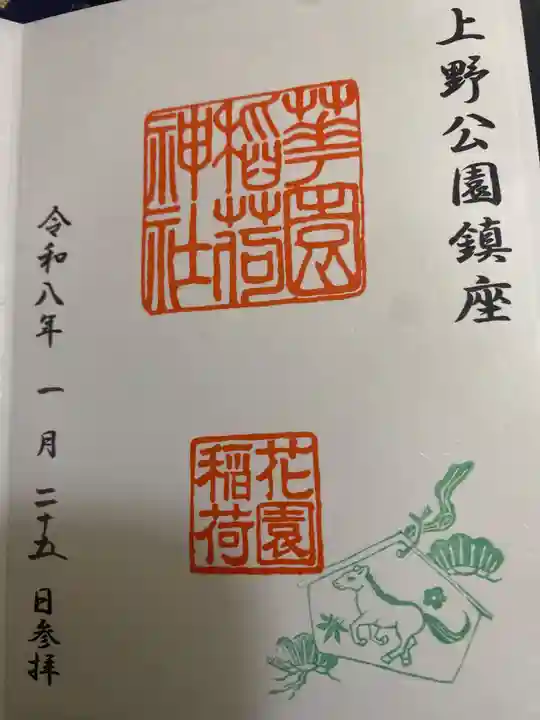 上野公園鎮座
華園
稲荷
神社
花園
稲荷
令和八年 一月 二十五日参拝